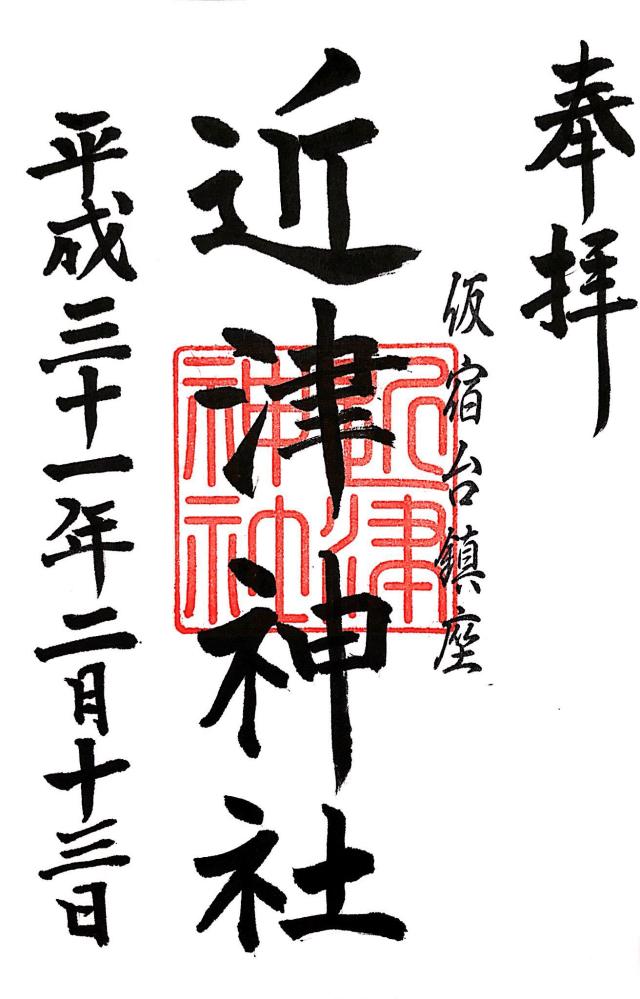 奉拝
仮宿台鎮座
近津神社
近津
神社
平成三十一年二月十三日